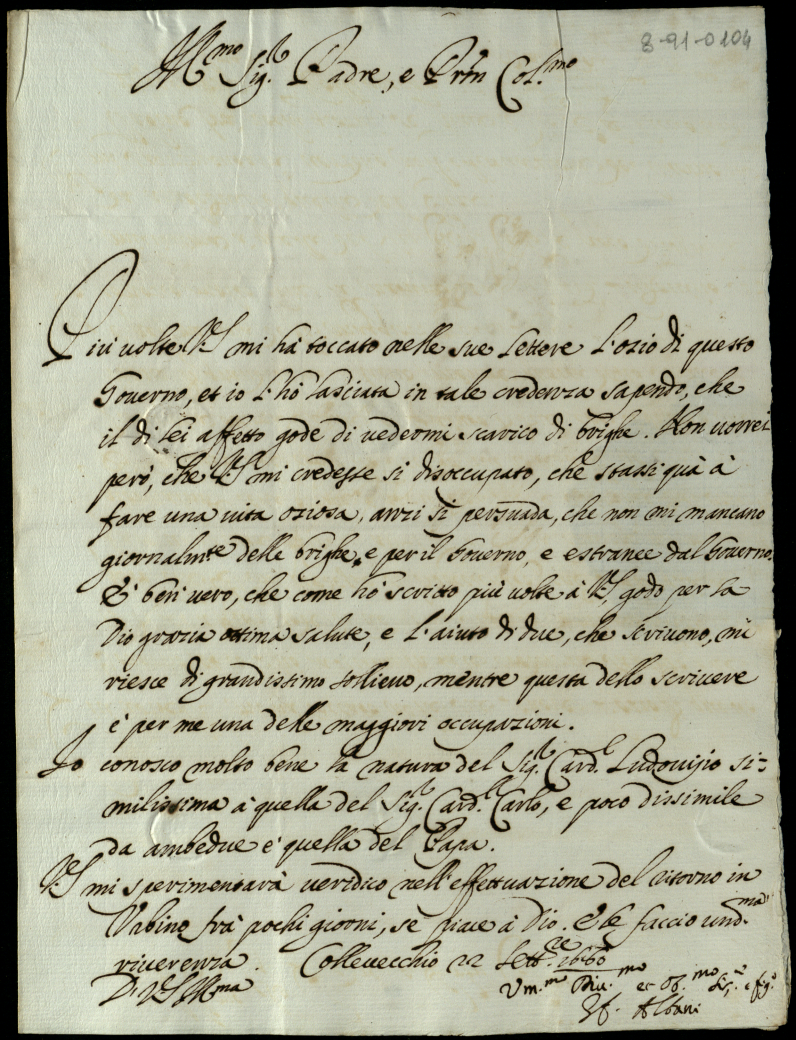 8-91-0104
Ill.mo Sig.r Padre, e Prĩn Col.mo
Più volte V.S. mi hà toccato nelle sue lettere l'ozio di questo
Governo, et io l'hò lasciata in tale credenza sapendo, che
il di lei affetto gode di vedermi scarico di brighe. Non vorrei
però, che V.S. mi credesse si disoccupato, che stassi quà à
fare una vita oziosa, anzi si persuada, che non mi mancano
giornalm.te delle brighe, e per il Governo, e estranee dal Governo.
E' ben vero, che come hò scritto più volte à V.S. godo per la
Dio grazia ottima salute, e l'aiuto di due, che scrivono, mi
riesce di grandissimo sollievo, mentre questa dello scrivere
è per me una delle maggiori occupazioni.
Io conosco molto bene la natura del Sig.r Card.l Ludovisio si=
milissima à quella del Sig.r Card.l Carlo, e poco dissimile
da ambedue è quella del Papa.
V.S. mi sperimentarà veridico nell'effettuazione del ritorno in
Urbino frà pochi giorni, se piace à Dio. E le faccio um.ma
riverenza. Collevecchio 22 Sett.re 1660
Di V.S. Ill.ma
Um.mo Div.mo et Ob.mo Ser.re e fig.o
Gf. Albani